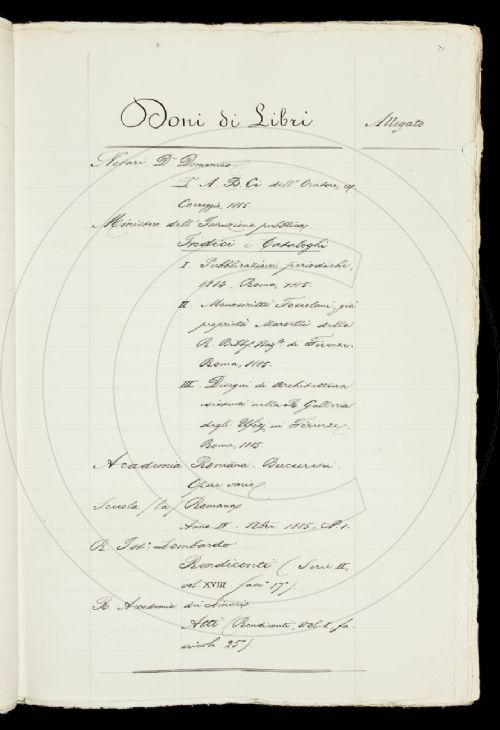 71
Doni di Libri
Allegato
Dr Domenico
L' A. B. Ci dell' Oratore,
Correggio, 1885.
Ministero dell' Istruzione pubblica
Indici e Cataloghi
I Pubblicazioni periodiche,
1884. Roma, 1885.
II Manoscritti Foscolani già
proprietà Martelli della
R. Bibl. Nazle di Firenze.
Roma, 1885.
III Disegni di Architettura
esistenti nella R. Galleria
degli Uffizi in Firenze.
Roma, 1885
Academia Romana. Bucuresci.
Opere varie
Scuola (la) Romana
Anno IV. Nbri. 1885, N. 1.
R. Isto Lombardo
Rendiconti (Serie II,
vol. XVIII fasc. 17º).
R. Accademia dei Lincei
Atti (Rendiconti, Vol. I, fa-
scicolo 25º)